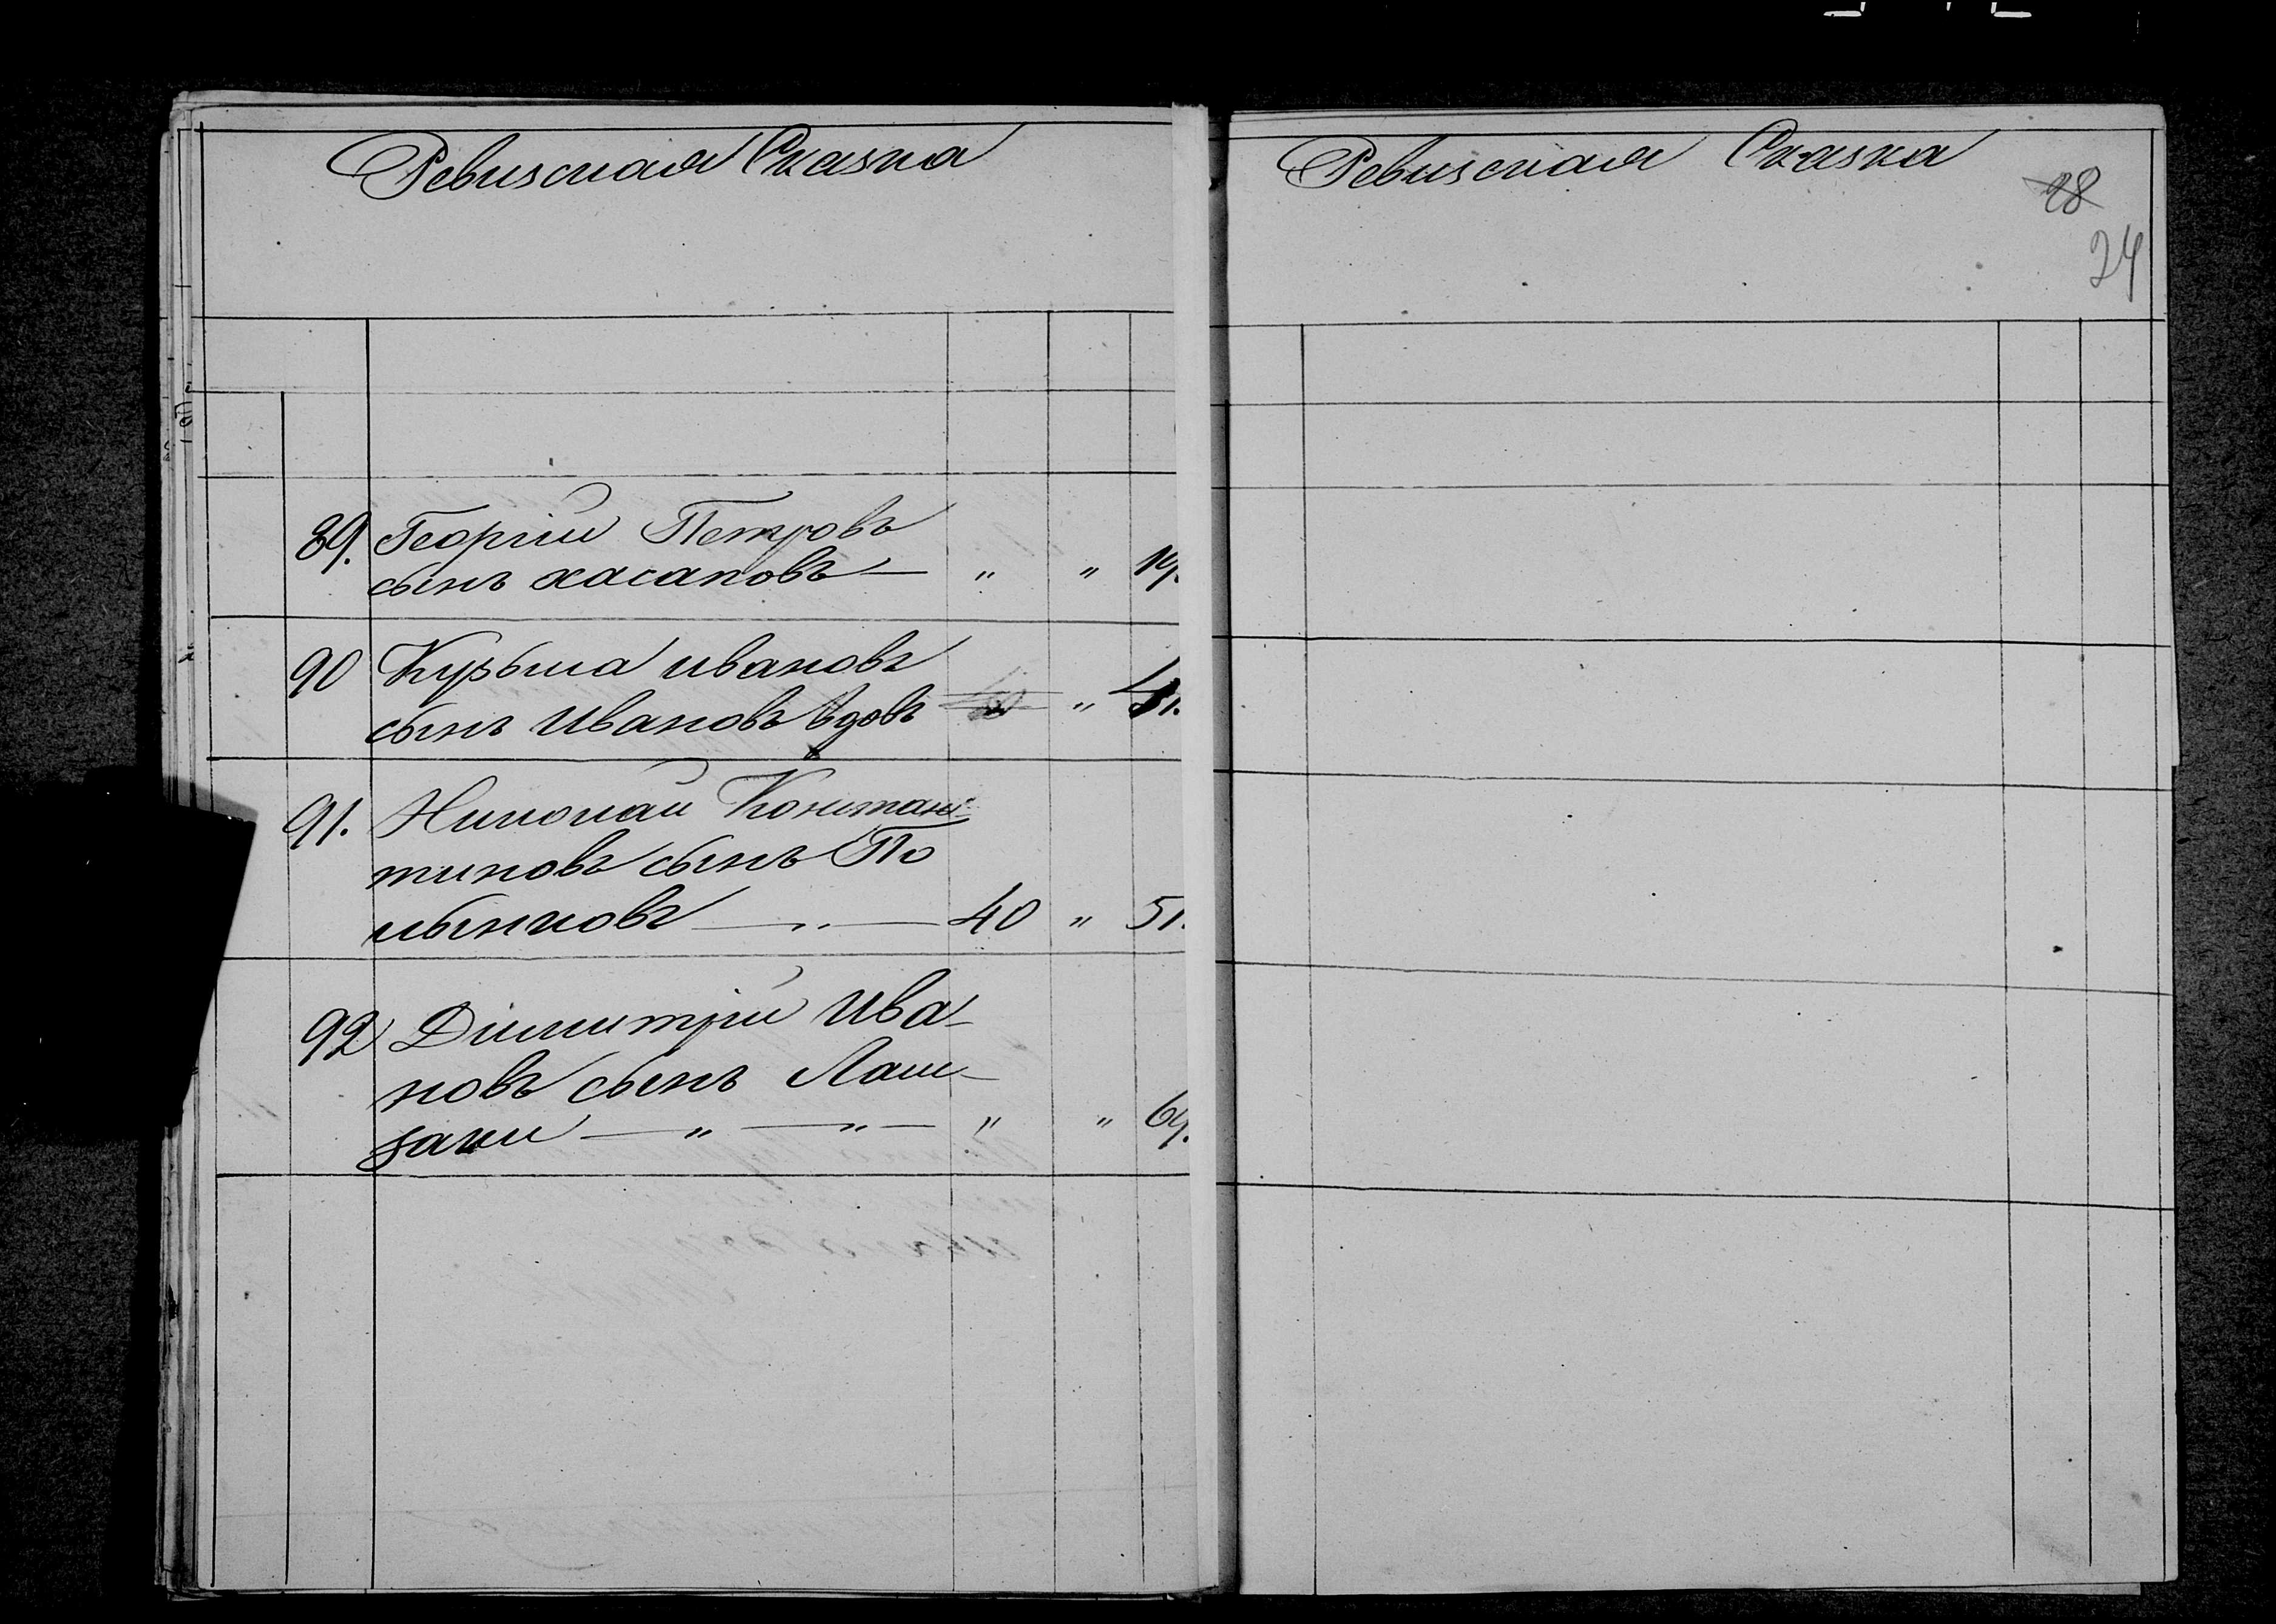 Ревизская Сказка
89. Георгій Петровъ
сынъ хасаповъ — " " 19.
90 Кузьма ивановъ
сынъ Ивановъ вдовъ " 41.
91. Николай Констан-
тиновъ сынъ По
лынковъ — " — 40 " 51.
92 Диимитрій Ива-
новъ сынъ Лаш-
заки — " — " — " " 64.
Ревизская Сказка
28
24